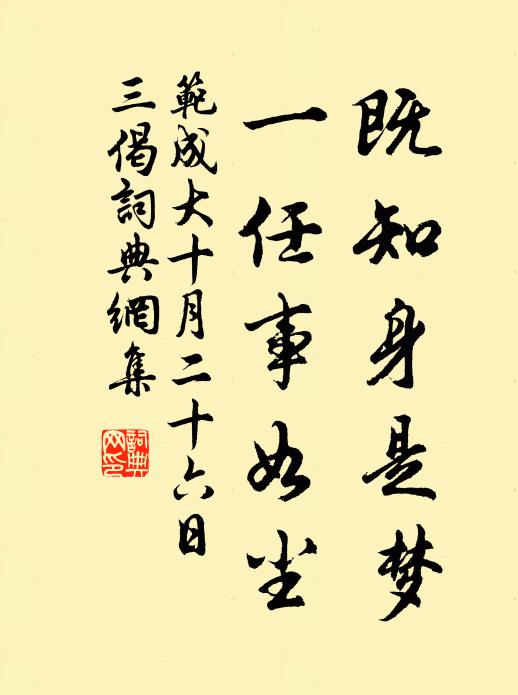 既知身是梦
一任事如尘
範成大十月二十六日
三偈詞典網集
詞典
网印